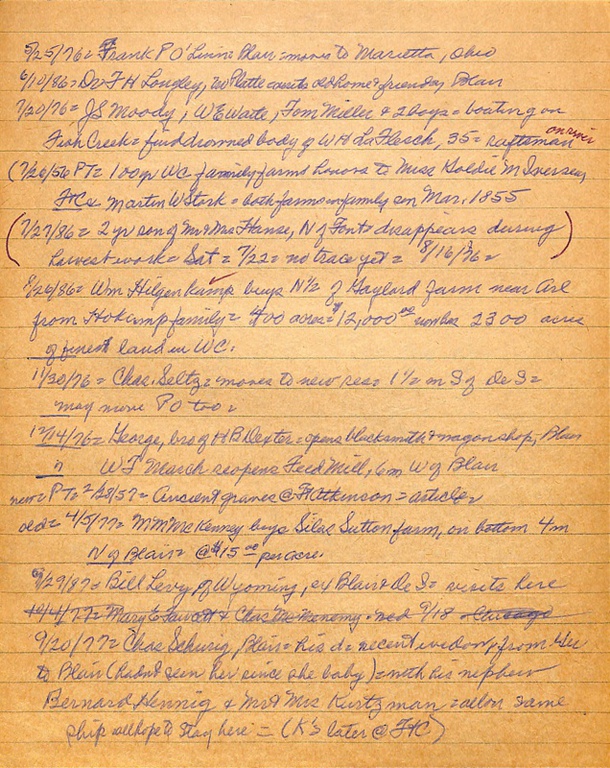 5/25/76 = Frank P O'Linn = Blair = moves to Marietta, Ohio
6/10/86 = Dr F H Longley, No Platte = visits old home & friends, Blair
7/20/76 = JS Moody, WE Waite, Tom Miller & 2 boys = boating on
Fish Creek = find drowned body of WH LaFlesch, 35 = raftsman on river
(7/20/56 PT = 100 yr WC family farms honors to Miss Goldie M Iversen,
FtC & Martin W Stork = both farms in family sin Mar, 1855
(7/27/86 = 2 yr son of Mr & Mrs Hanse, N of Font = disappears during
harvest work = Sat = 7/22 = no trace yet = 8/16/76 = )
8/26/86 = Wm Hilgenkamp buys N 1/2 of Gaylord farm near Arl
from Hokamp family = 400 acres = $12,000 00 2300 acres
of finest land in WC.
11/30/76 = Chas. Seltz = moves to new res = 1 1/2 = m S of De S =
may move PO too =
12/14/76 = George, bro of HB Dexter = opens blacksmith & wagon shop, Blair
" WF March reopens Feed Mill, 6m W of Blair
new = PT = 2/28/57 = Ancient graves @ Ft Atkinson = article =
old = 4/5/77 = MM McKenney buys Silas Sutton farm, on bottom 4m
N of Blair = @ $15 00 per acre.
6/29/87 = Bill Levy, of Wyoming, ex Blair & De S = visits here
10/4/77 = Mary E Fawcett & Chas McMenemy = wed 9/18 = Chicago
9/20/77 = Chas Schurig, Blair = his d = recent widow, from Ger
to Blair (hadnt seen her since she baby) = with his nephew
Bernard Hennig & Mr & Mrs Kurtzman = all on same
ship all hope to stay here = (K's later @ FtC)